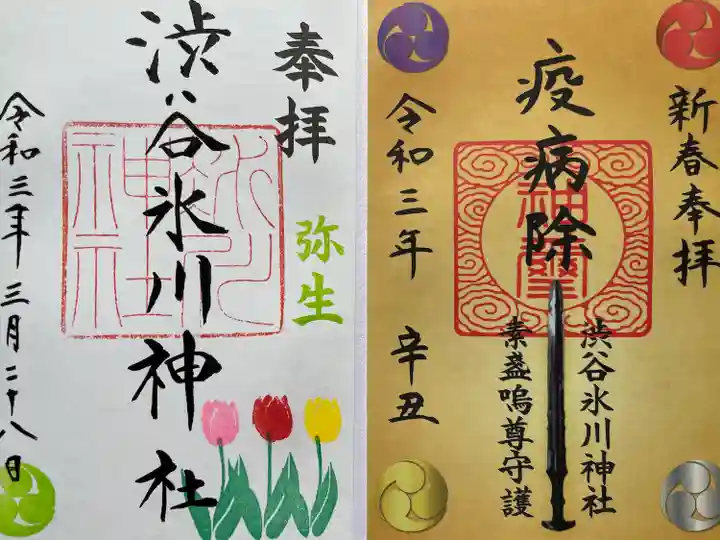 奉拝
弥生
渋谷氷川神社
氷川
神社
令和三年三月二十八日
新春奉拝
疫病除
渋谷氷川神社
素盞嗚尊守護
令和三年 辛丑